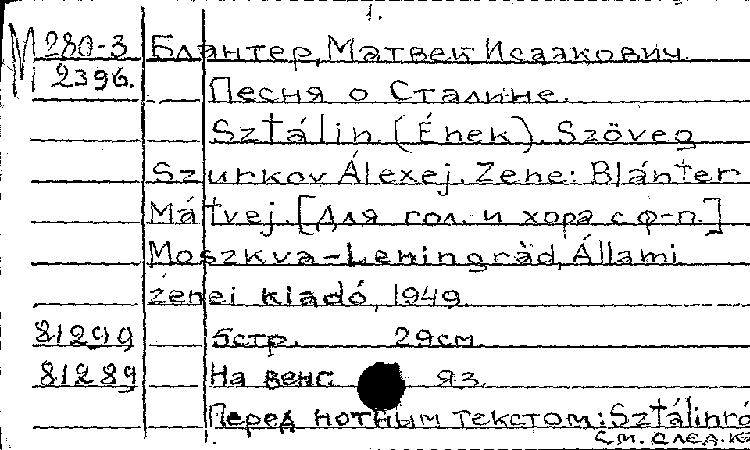 1.
М 280-3 Блантер, Матвек Исаакович
2396. Песня о Сталине.
Sztálin (Ének). Szöveg
Szurkov Álexej. Zene: Blánter
Mátvej. [Для гол. и хора с ф-п.]
Moszkva-Leningràd, Állami
żenei kiadó, 1949.
81299 5стр. 29см
81289 На венг яз.
Перед нотным текстом: Sztálinró
См. след. к